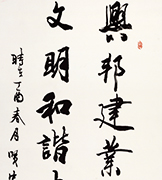 興邦建業
文明和諧
時在丁酉春月